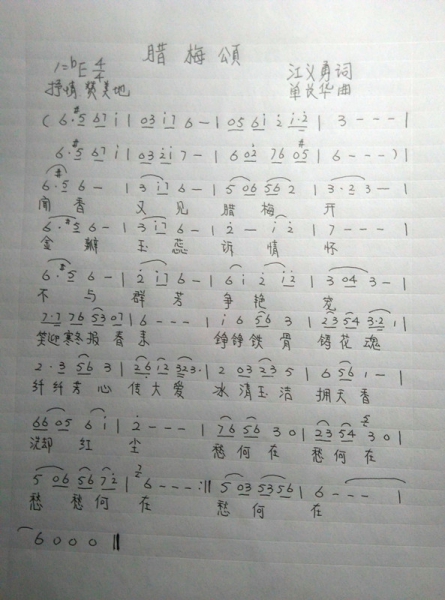 腊梅頌
1=bE 4/4 江义勇词
抒情 赞美地 单长华曲
( 6·#5 67 i | 03 i7 6 - | 05 6i 2 i·2 | 3 - - - |
6·#5 67 i | 03 2i 7 - | 6 02 76 0#5 | 6 - - - ) |
6·#5 6 - | 3 i7 6 - | 5 06 56 2 | 3·2 3 - |
闻香 又见 腊梅 开
6·#5 6 - | 3 i7 6 - | 2 - i 2 | 7 - - - |
金瓣 玉蕊 诉情 怀
6·#5 6 - | 2 i7 6 - | 6 i 2 i2 | 3 04 3 - |
不与 群芳 争艳 宠
7·7 76 53 07 | 6 - - - | i 6 56 3 | 23 54 3·2 1 |
笑迎寒冬报春 来 铮铮铁骨 镌花魂
2·3 56 3 | 26 12 323· | 2 03 23 5 | 6 56 1 - |
纤纤芳心 传大爱 冰清玉洁 拥天香
66 05 6 i | 2 - - - | 76 56 3 0 | 23 54 3 0 |
洗却红 尘 愁何在 愁何在
5 06 56 72 | 6 - - - :|| 5 03 53 56 | 6 - - - |
愁愁何 在 愁何 在
6 0 0 0 ||